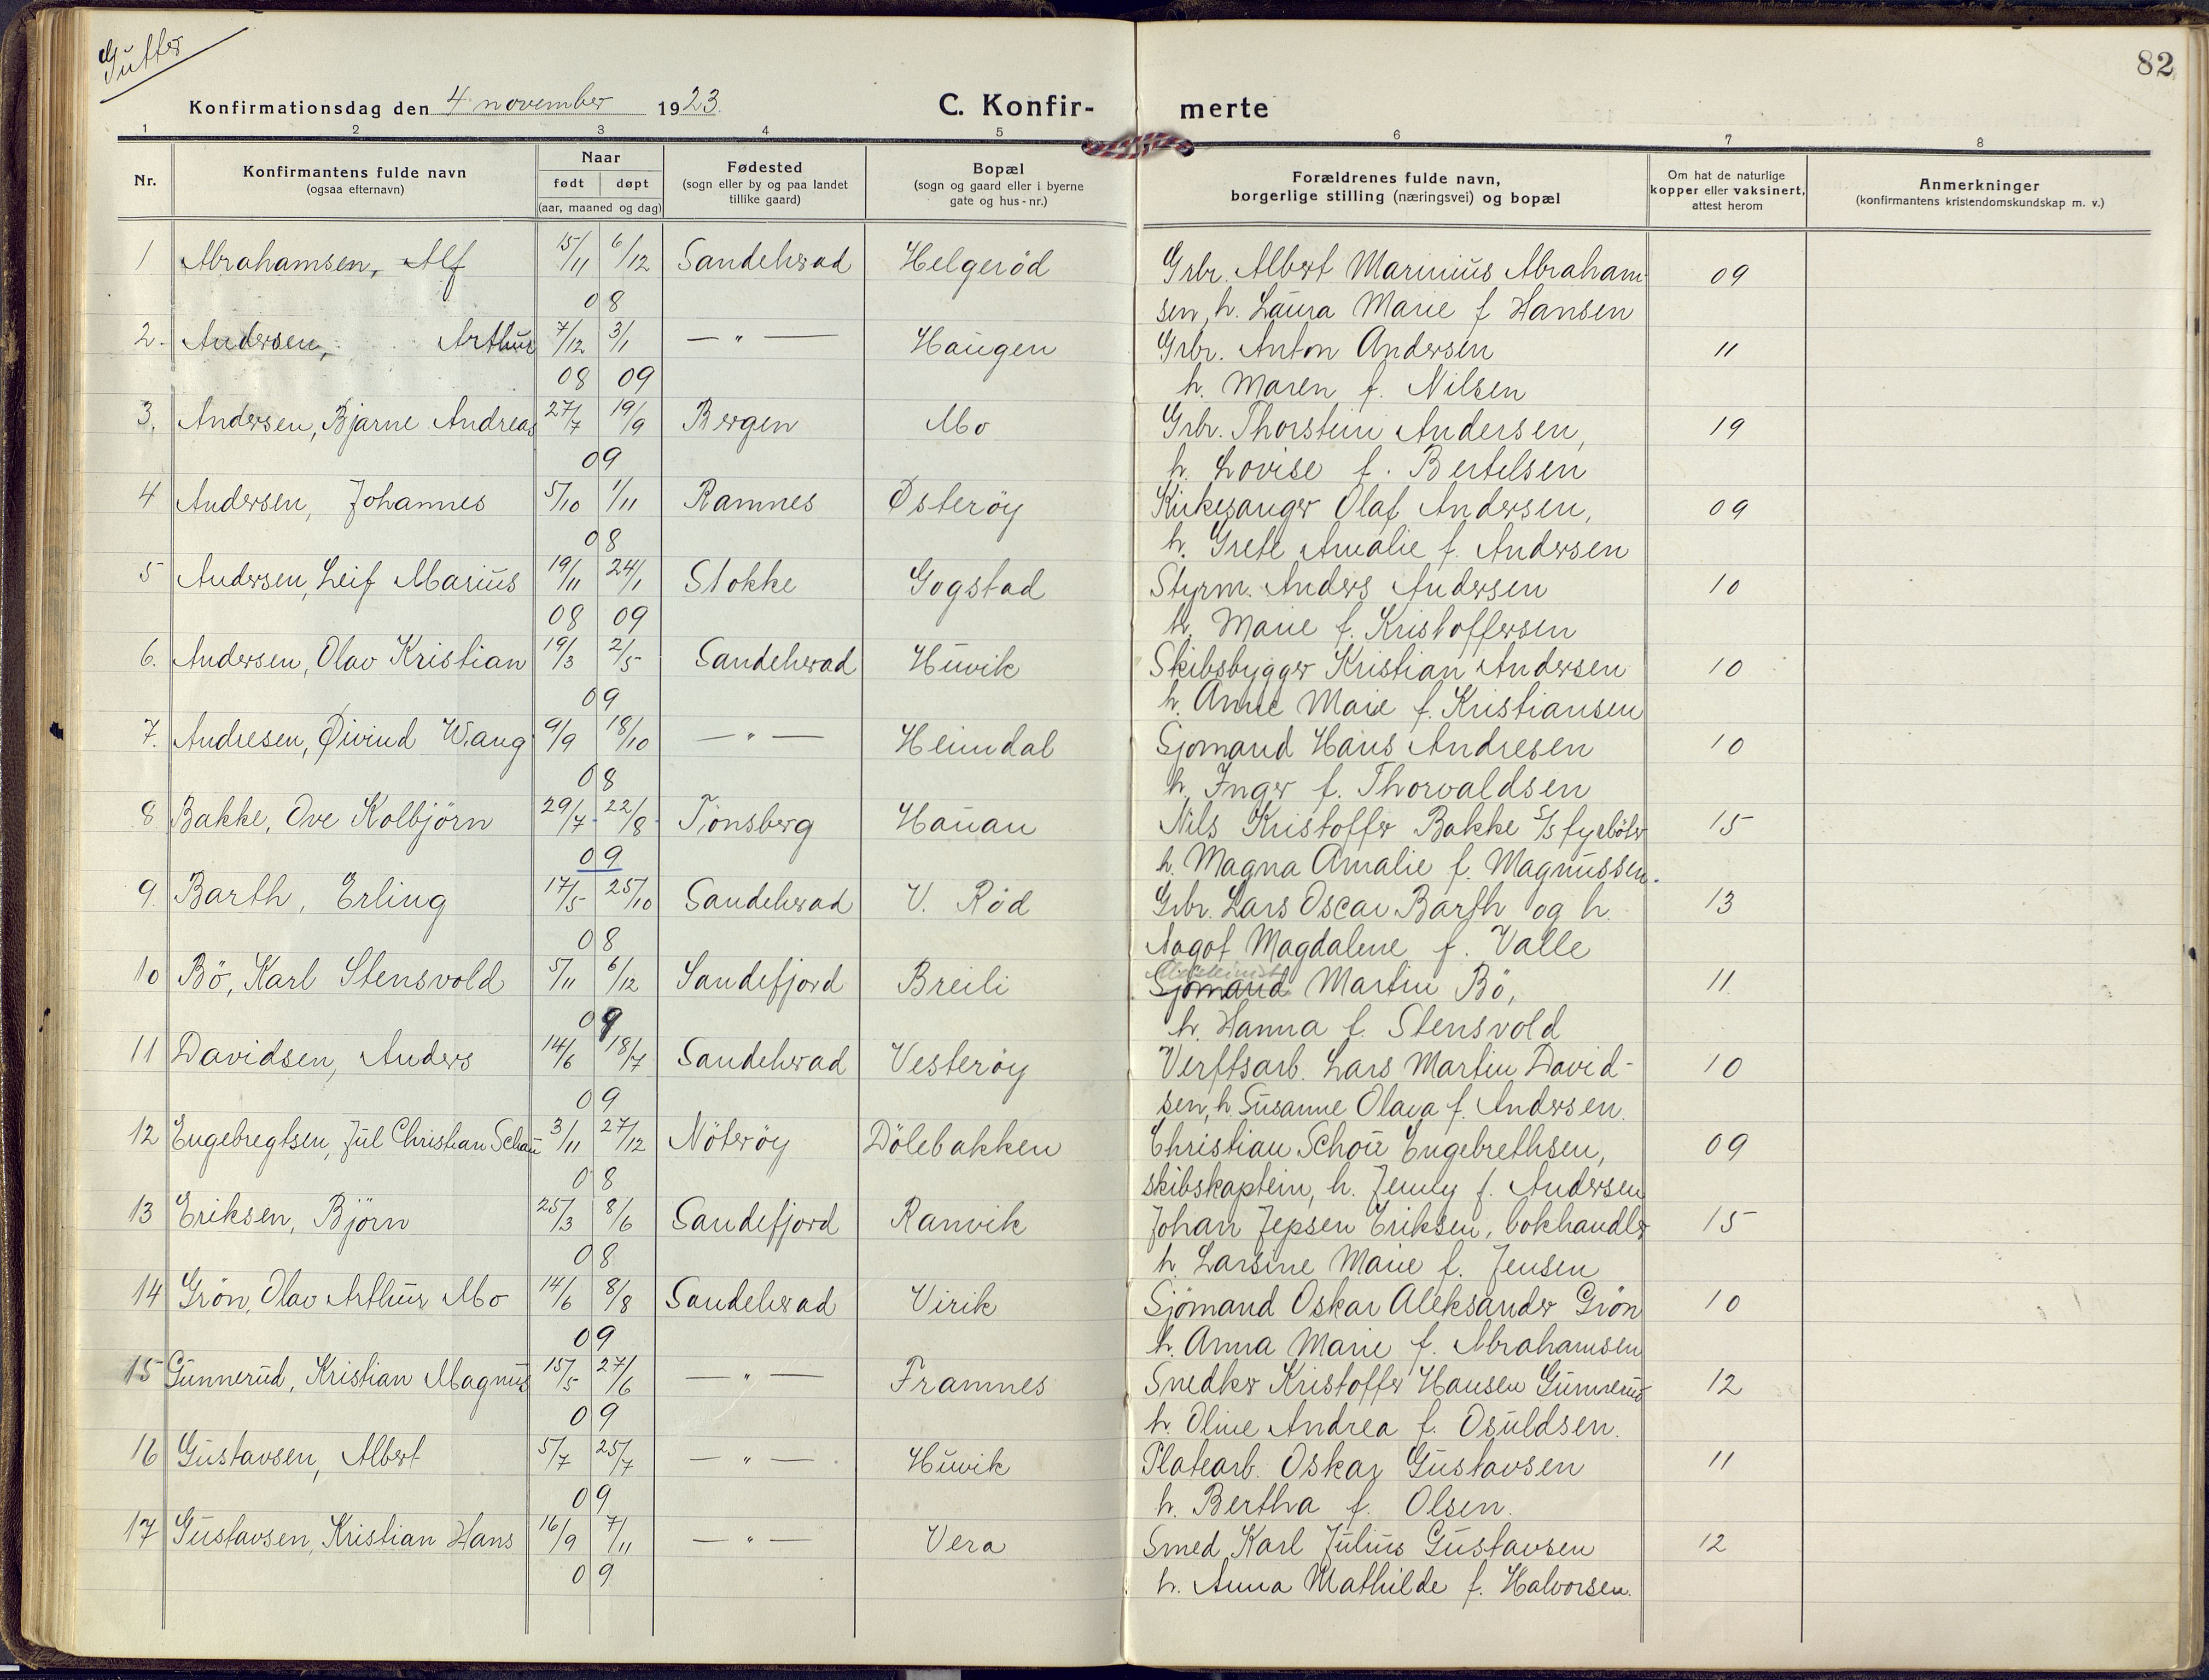 Gutter
82
Konfirmationsdag den 4 november 1923.
C. Konfirmerte
1 2 3 4 5 6 7 8
Nr.
Konfirmantens fulde navn
(ogsaa efternavn)
Naar
født døpt
(aar, maaned og dag)
Fødested
(sogn eller by og paa landet
tillike gaard)
Bopæl
(sogn og gaard eller i byerne
gate og hus-nr.)
Forældrenes fulde navn,
borgerlige stilling (næringsvei) og bopæl
Om hat de naturlige
kopper eller vaksinert,
attest herom
Anmerkninger
(konfirmantens kristendomskundskap m. v.)
1 Abrahamsen, Alf 15/11 6/12 Sandeherad Helgerød Grbr. Albert Marinius Abraham- 09
08 sen, h. Laura Marie f Hansen
2. Andersen, Arthur 7/12 3/1 — " — Haugen Grbr. Anton Andersen 11
08 09 h. Maren f. Nilsen
3. Andersen, Bjarne Andreas 27/7 19/9 Bergen Mo Grbr. Thorstein Andersen, 19
09 h. Lovise f. Bertelsen
4 Andersen, Johannes 5/10 1/11 Ramnes Østerøy Kirkesanger Olaf Andersen, 09
08 h. Grete Amalie f. Andersen
5 Andersen, Leif Marius 19/11 24/1 Stokke Gogstad Styrm. Anders Andersen 10
08 09 h. Marie f. Kristoffersen
6. Andersen, Olav Kristian 19/3 2/5 Sandeherad Huvik Skibsbygger Kristian Andersen 10
09 h. Anne Marie f. Kristiansen
7. Andresen, Øivind Wang 9/9 18/10 — " — Heimdal Sjømand Hans Andresen 10
08 h. Inger f. Thorvaldsen
8 Bakke, Ove Kolbjörn 29/7 22/8 Tönsberg Hauan Nils Kristoffer Bakke S/S fyrböter 15
09 h. Magna Amalie f. Magnussen.
9 Barth, Erling 17/5 25/10 Sandeherad V. Rød Grbr. Lars Oscar Barth og h. 13
08 Aagot Magdalene f. Valle
Maskinist
10 Bö, Karl Stensvold 5/11 6/12 Sandefjord Breili Sjømand Martin Bö, 11
09 h. Hanna f. Stensvold
11 Davidsen, Anders 14/6 18/7 Sandeherad Vesterøy Verftsarb. Lars Martin David- 10
09 sen, h. Susanne Olava f. Andersen.
12 Engebregtsen, Jul Christian Schau 3/11 27/12 Nöterøy Dölebakken Christian Schou Engebrethsen, 09
08 skibskaptein, h. Jenny f. Andersen
13 Eriksen, Björn 25/3 8/6 Sandefjord Ranvik Johan Jepsen Eriksen, bokhandler 15
08 h. Larsine Marie f. Jensen
14 Grön, Olav Arthur Mo 14/6 8/8 Sandeherad Virik Sjömand Oskar Aleksander Grön 10
09 h. Anna Marie f. Abrahamsen
15 Gunnerud, Kristian Magnus 15/5 27/6 — " — Framnes Snedker Kristoffer Hansen Gunnerud 12
09 h. Oline Andrea f. Osuldsen.
16 Gustavsen, Albert 5/7 25/7 — " — Huvik Platearb. Oskar Gustavsen 11
09 h. Bertha f. Olsen.
17 Gustavsen, Kristian Hans 16/9 7/11 — " — Vera Smed Karl Julius Gustavsen 12
09 h. Anna Mathilde f. Halvorsen.